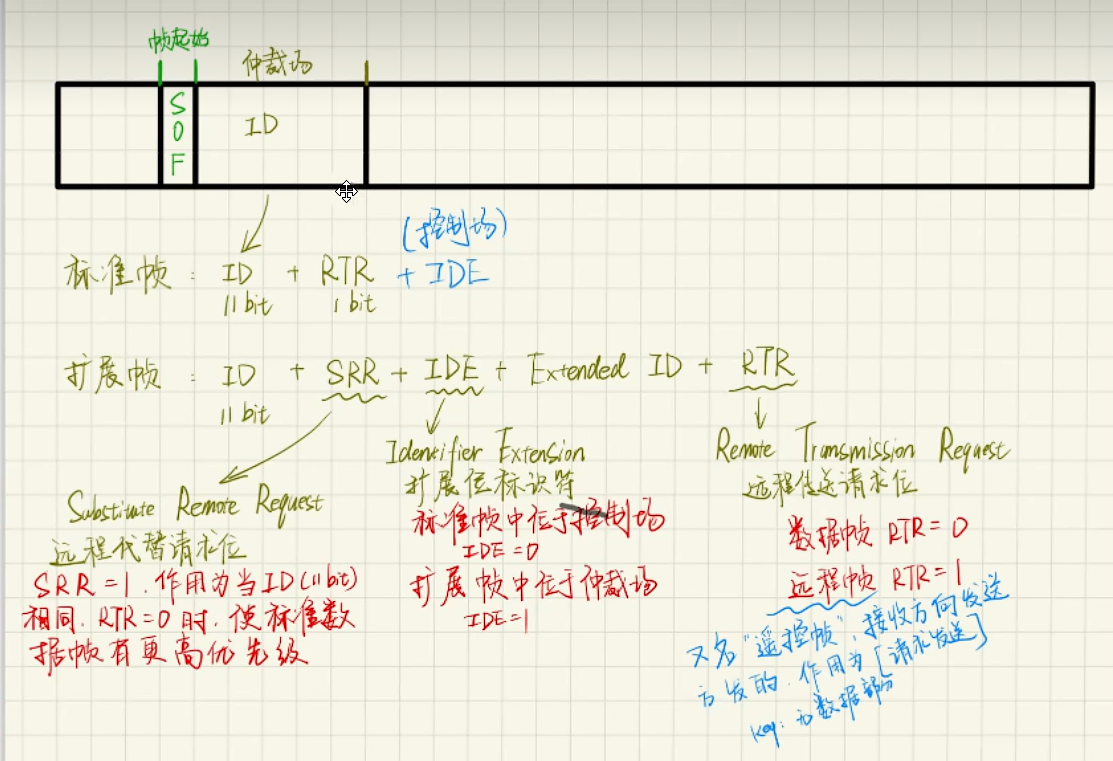 帧起始
仲裁场
SOF
ID
(控制场)
标准帧: ID + RTR + IDE
11 bit 1 bit
扩展帧: ID + SRR + IDE + Extended ID + RTR
11 bit
Substitute Remote Request
远程代替请求位
SRR = 1. 作用为当ID(11bit)
相同. RTR=0时. 使标准数
据帧有更高优先级
Identifier Extension
扩展位标识符
标准帧中位于控制场
IDE = 0
扩展帧中位于仲裁场
IDE=1
Remote Transmission Request
远程传送请求位
数据帧 RTR = 0
远程帧 RTR = 1
又名"遥控帧", 接收方向发送
方发的. 作用为[请求发送]
key: 无数据部分